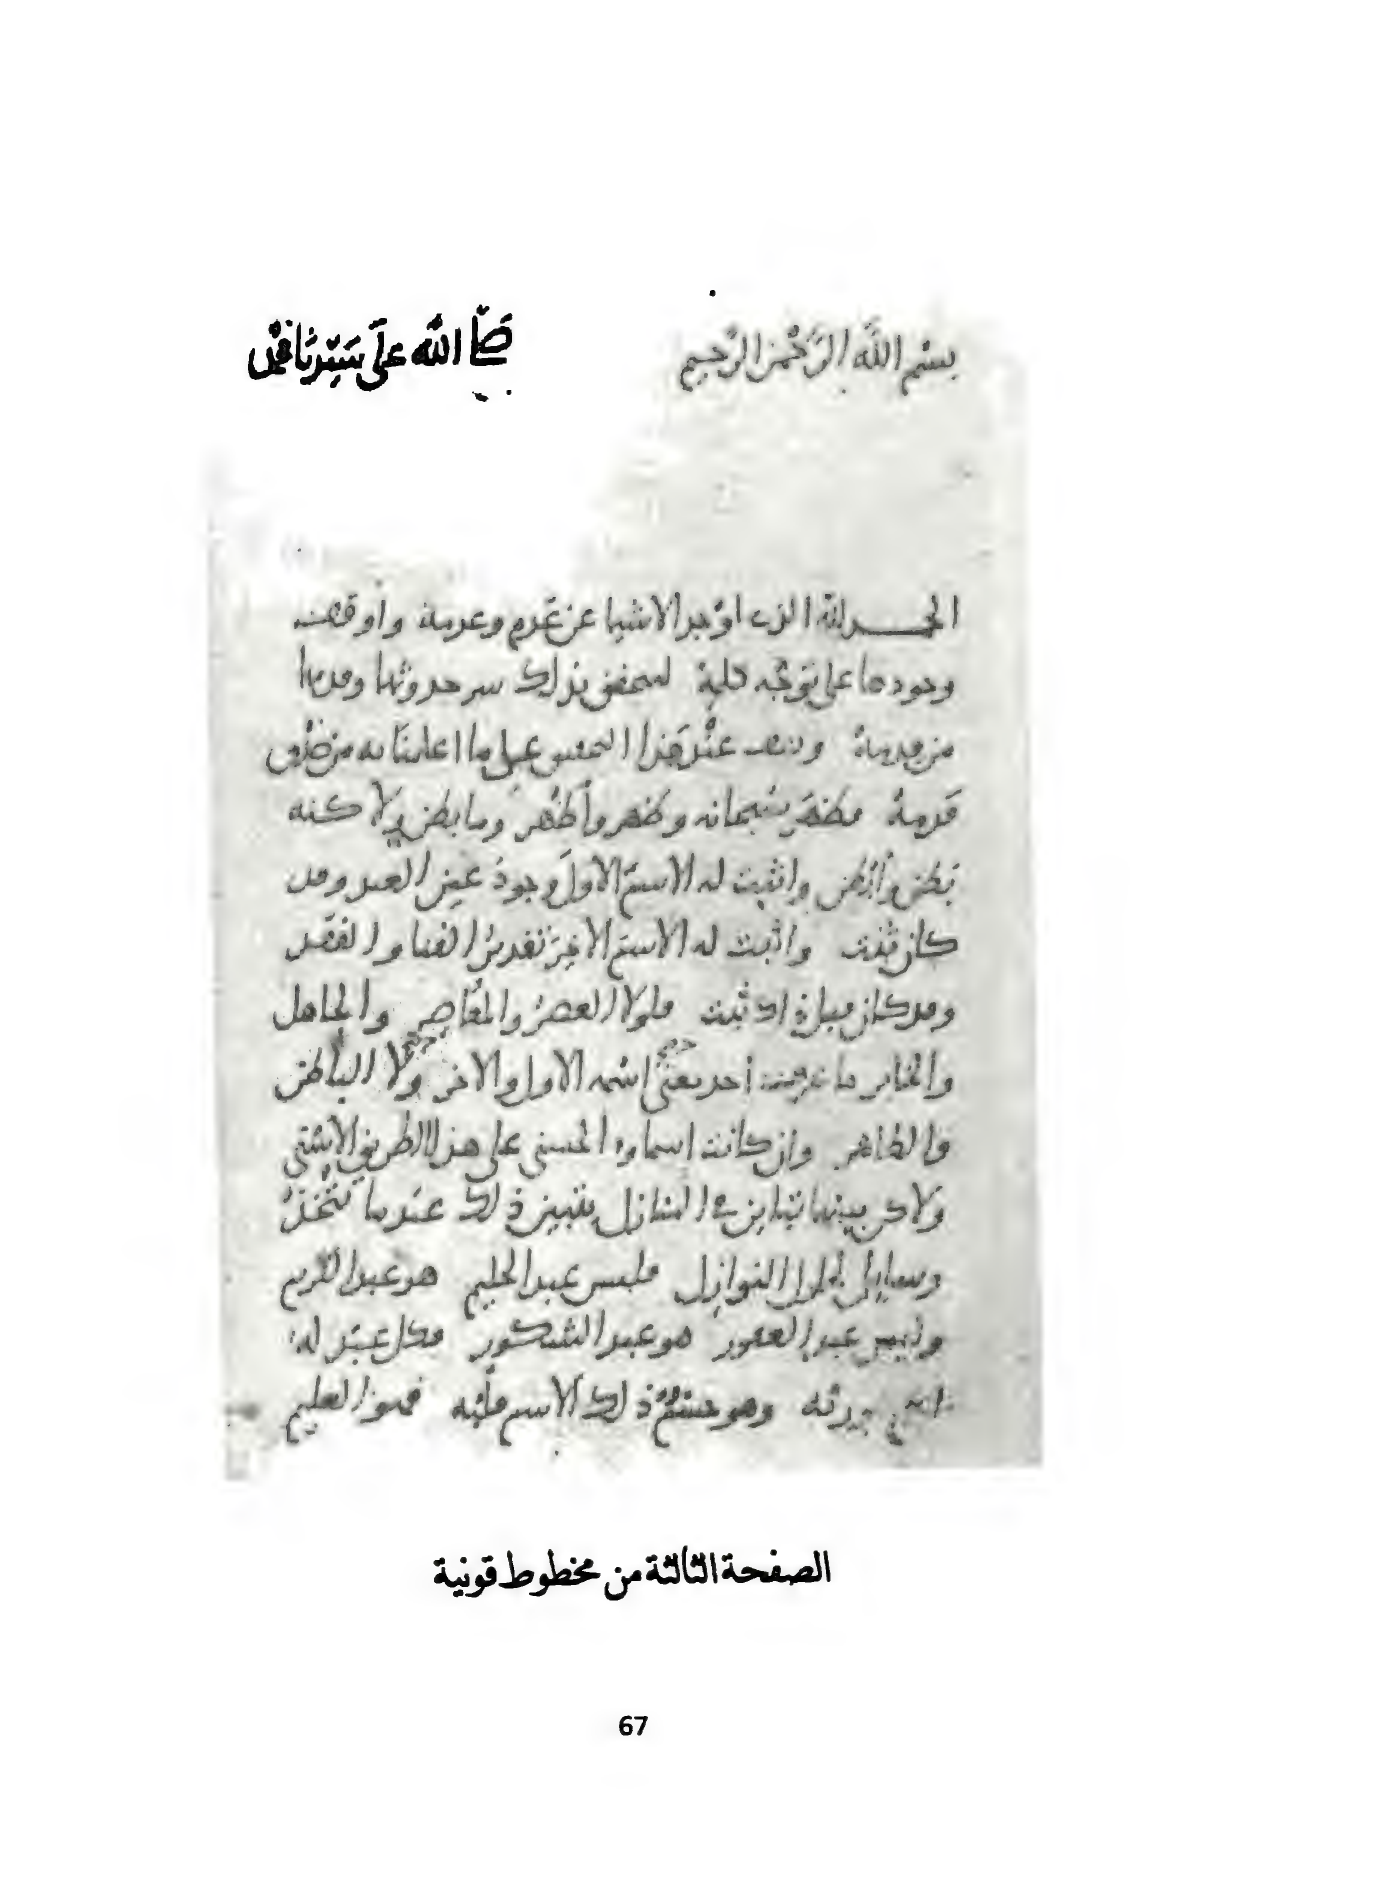 بسم الله الرحمن الرحيم
صلى الله على سيدنا محمد
الحمد لله الذي اوجد الاشيا عن عدم وعدمه واوقف
وجودها على توجه كلمه لنحقق بذلك سر حدوثها وقدمها
من قدمه ونقف عند هذا التحقيق على ما اعلمنا به من صدق
قدمه فظهر سبحانه وظهر وأظهر وما بطن ولاكنه
بطن وأبطن واثبت له الاسم الاول وجود عين العبد وقد
كان ثبت واثبت له الاسم الاخر تقدير الفنا والفقد
وقد كان قبل ذلك ثبت فلولا العصر والمعاصر والجاهل
والخابر ما عرف احد معنى اسمه الاول والاخر ولا الباطن
والظاهر وان كانت اسماوه الحسنى على هذا الطريق الاسنى
ولاكن بينها تباين في المنازل يتبين ذلك عندما تتخذ
وسايل لحلول النوازل فليس عبد الحليم هو عبد الكريم
وليس عبد الغفور هو عبد الشكور فكل عبد له
اسم هو ربه وهو جسم ذلك الاسم قلبه فهو العليم
الصفحة الثالثة من مخطوط قونية
67